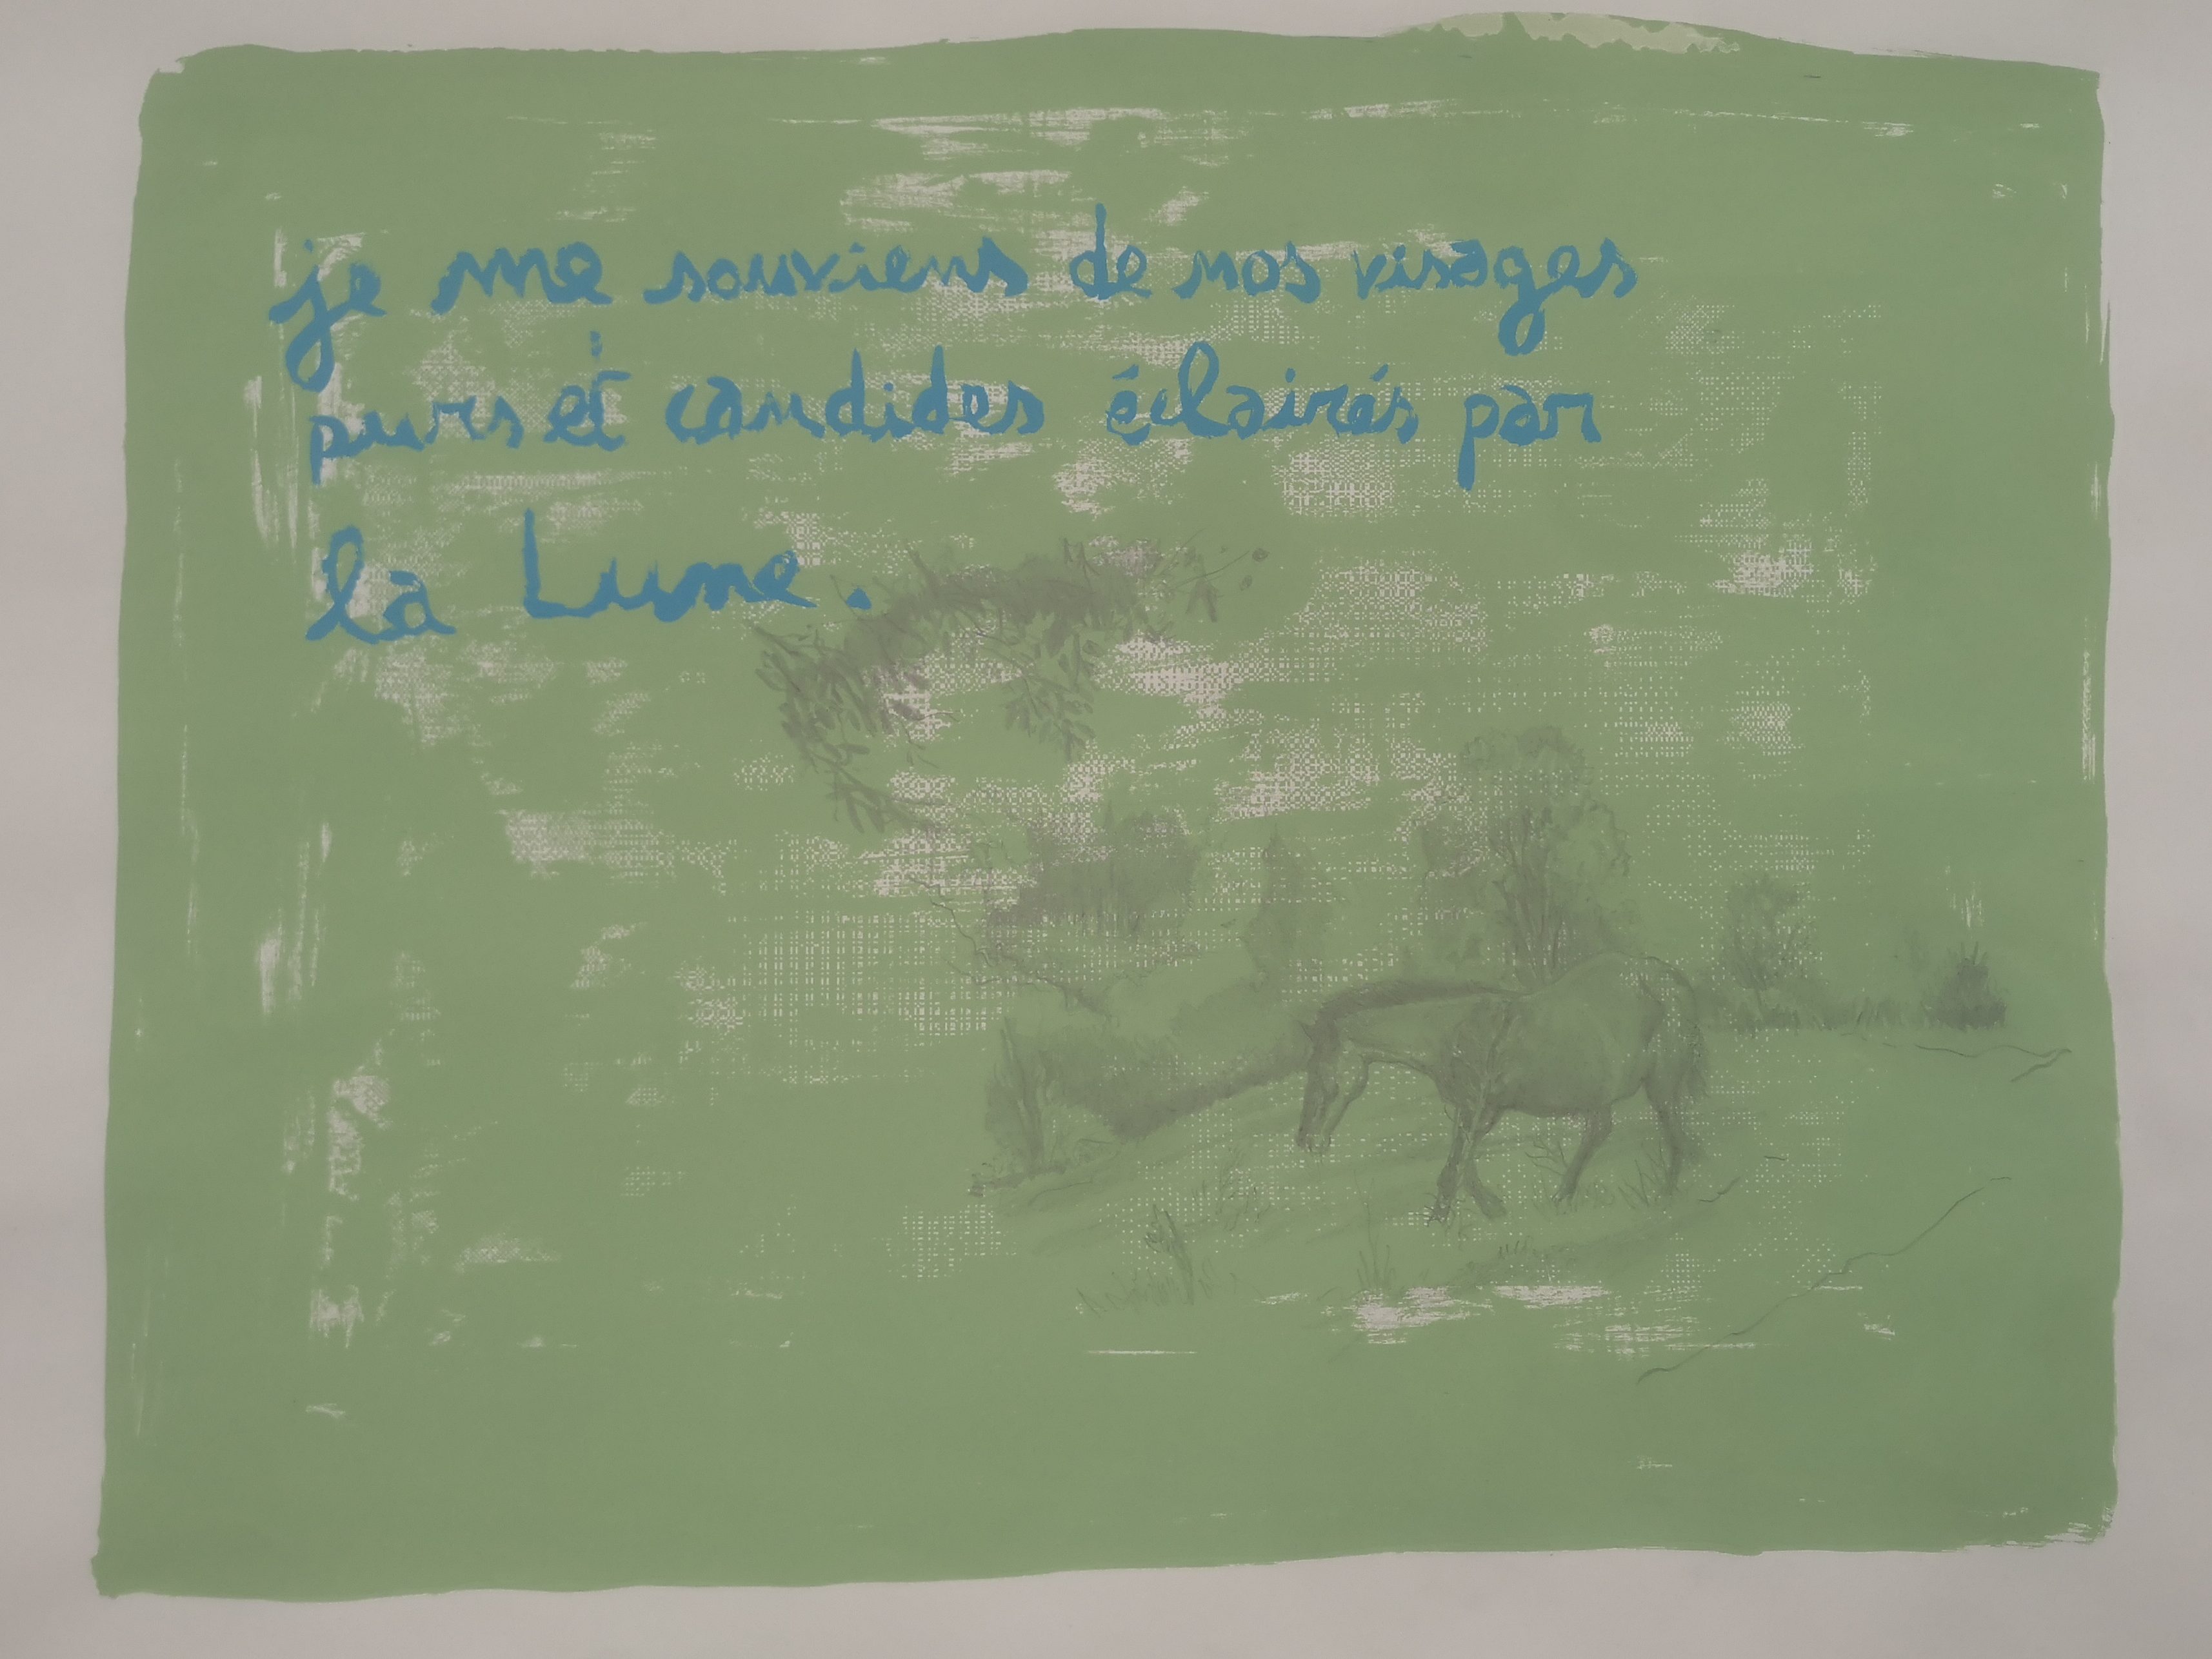 je me souviens de nos visages
purs et candides éclairés par
la Lune.